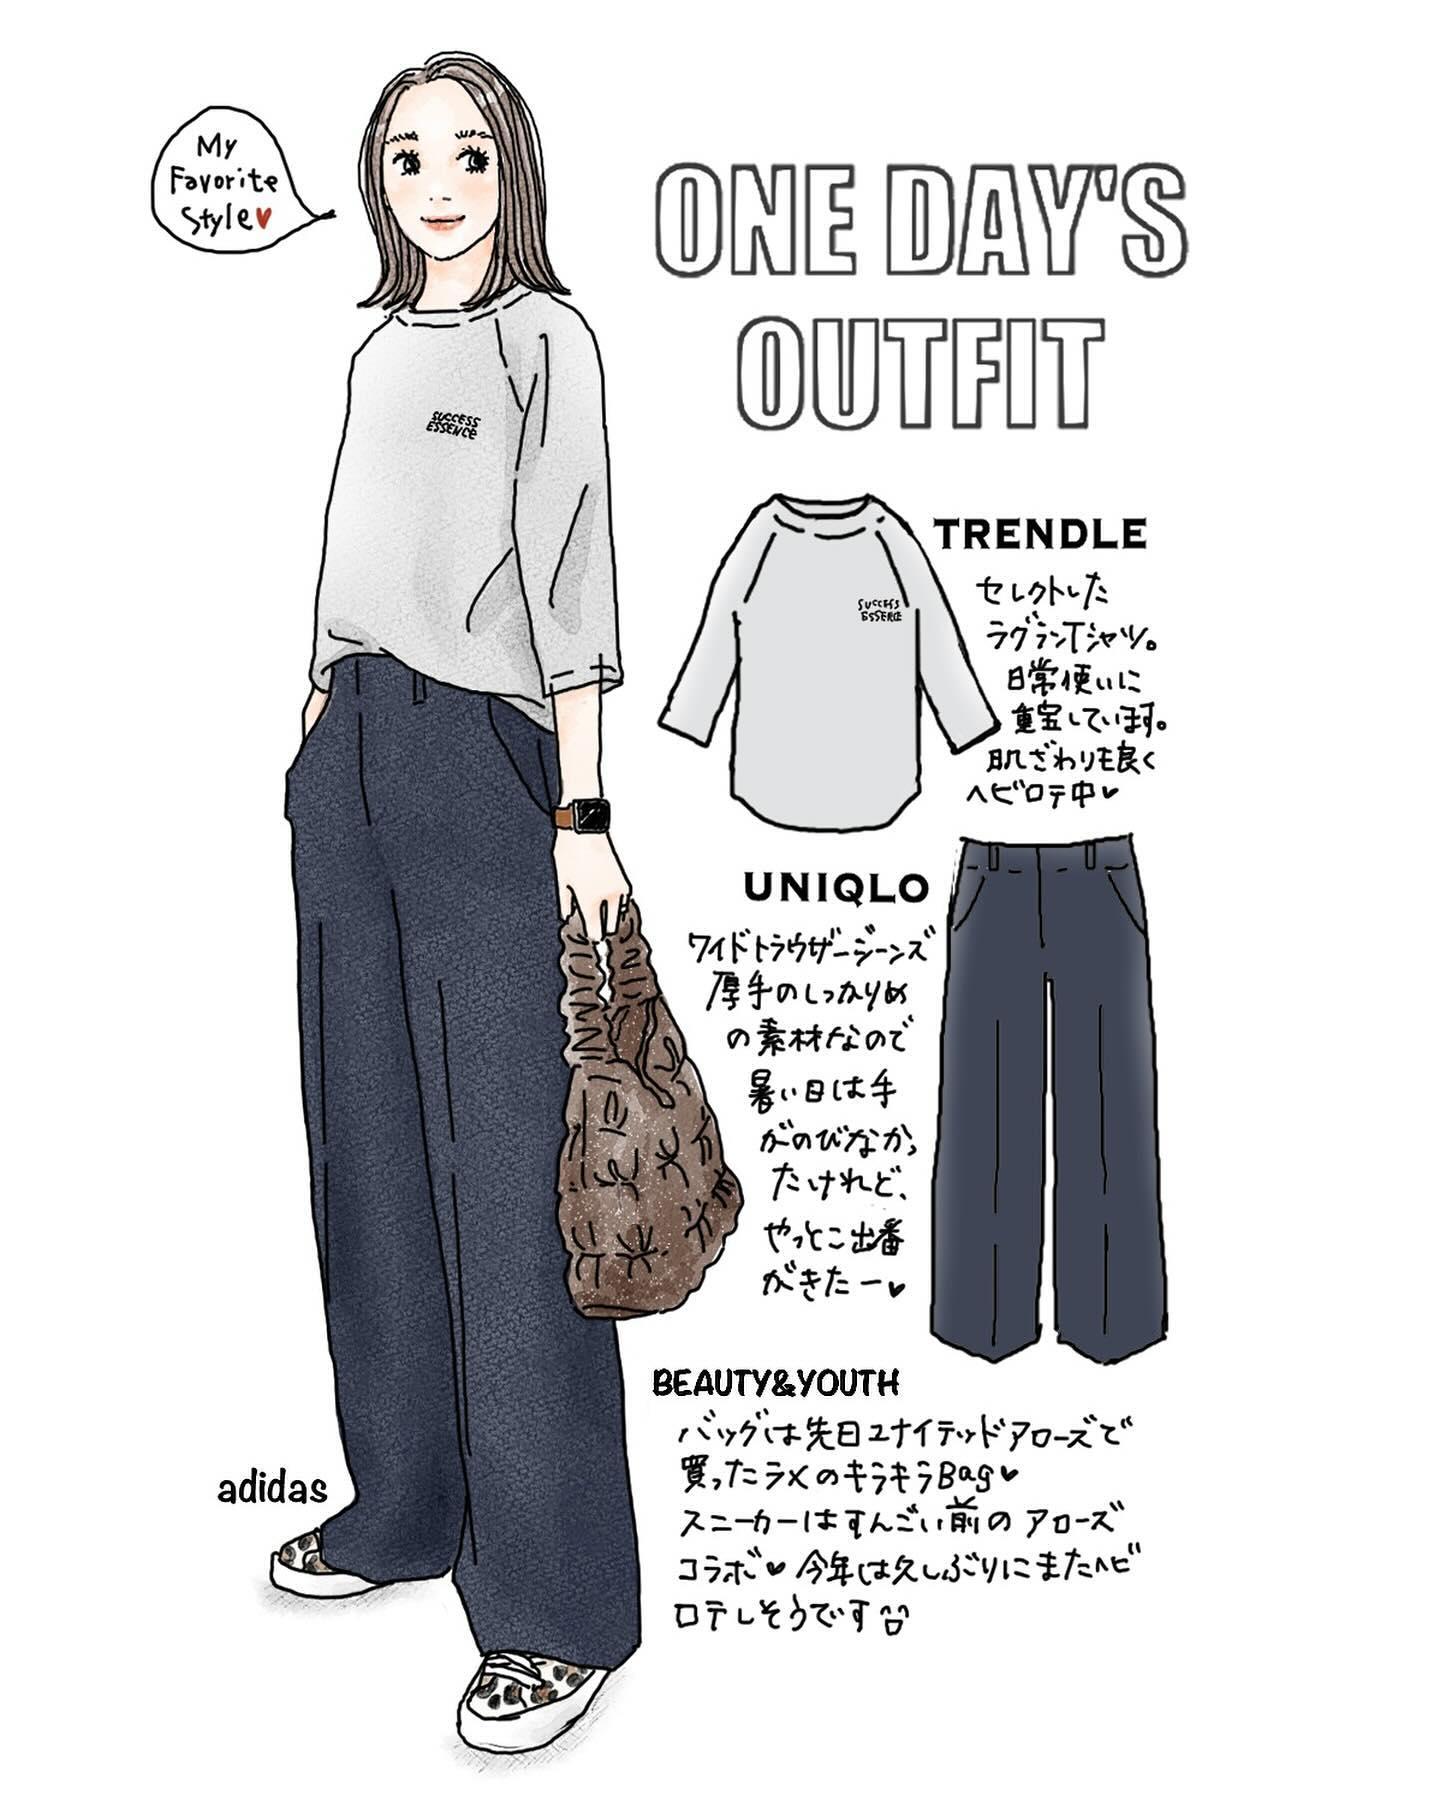 My
Favorite
Style♥
ONE DAY'S
OUTFIT
SUCCESS
ESSENCE
TRENDLE
セレクトした
ラグランTシャツ。
日常使いに
重宝しています。
肌ざわりも良く
ヘビロテ中♥
SUCCESS
ESSENCE
UNIQLO
ワイドトラウザージーンズ
厚手のしっかりめ
の素材なので
暑い日は手
がのびなかっ
たけれど、
やっとこ出番
がきたー♥
BEAUTY&YOUTH
バッグは先日ユナイテッドアローズで
買ったラメのキラキラBag♥
スニーカーはすんごい前のアローズ
コラボ♥今年は久しぶりにまたヘビ
ロテしそうです
adidas